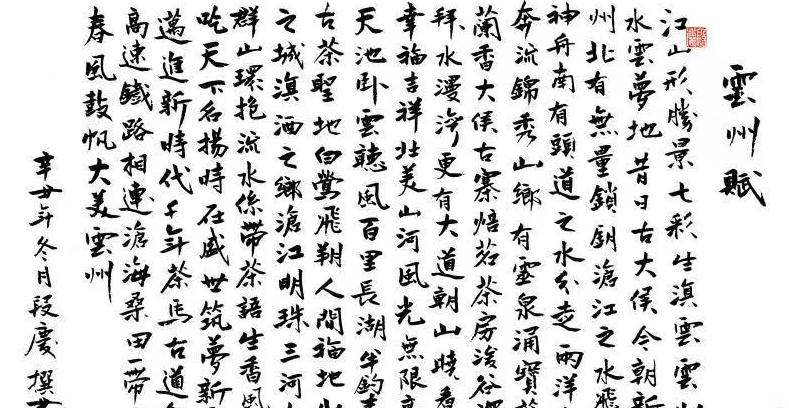 雲州賦
江山形勝景七彩生滇雲雲
水雲夢地昔日古大侯今朝新
州北有無量鎖鑰滄江之水飛
神舟南有頭道之水分走兩洋
奔流錦秀山鄉有靈泉涌寶
蘭香大侯古寨焙茗茶房後谷
拜水漫灣更有大道朝山曉看
幸福吉祥壯美山河風光無限
天池卧雲聽風百里長湖半鈎
古茶聖地白鶯飛翔人間福地
之城滇酒之鄉滄江明珠三河
群山環抱流水係帶茶語生香風
吃天下名揚時在盛世筑夢新
邁進新時代千年茶馬古道
高速鐵路相連滄海桑田一帶
春風鼓帆大美雲州
辛丑年冬月段慶撰